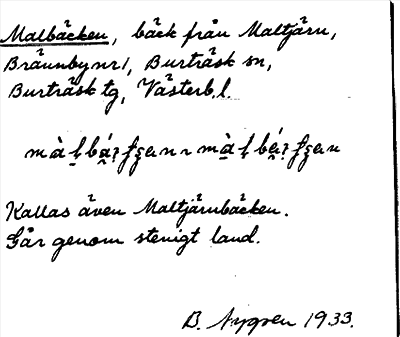 Malbäcken, bäck från Maltjärn,
Brännby nr 1, Burträsk sn,
Burträsk tg, Västerb. l.
Kallas även Maltjärnbäcken.
Går genom stenigt land.
B. Nygren 1933.